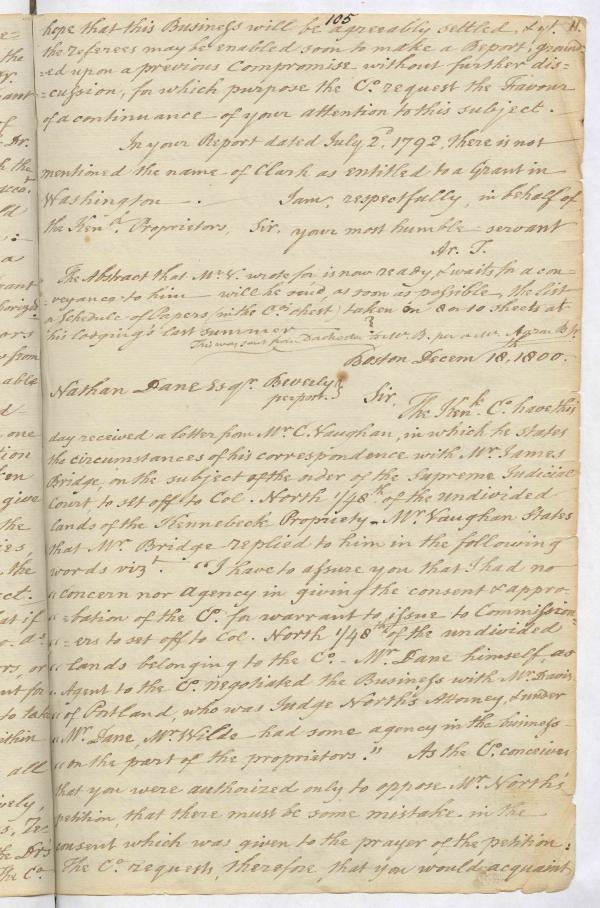 105
hope that this Business will be agreeably settled, & yt.
the referees may be enabled soon to make a Report, ground
=ed upon a previous Compromise without further dis=
=cussion, for which purpose the Co. request the Favour
of a continuance of your attention to this subject.
In your Report dated July 2d. 1792, there is not
mentioned the name of Clark as entitled to a Grant in
Washington. I am, respectfully, in behalf of
the Kenk. Proprietors, Sir, your most humble servant
Ar. T.
The Abstract that Mr. V. wrote for is now ready, & waits for a con=
=veyance to him will be send, as soon as possible, the list
or Schedule of Papers (in the Cos. chest) taken on 8 or 10 sheets at
his lodging's last summer
This was sent
Boston Decem 18th, 1800.
Nathan Dane Esqr. Beverly
per post. Sir, The Kenk. Co. have this
day received a letter from Mr. C. Vaughan, in which he states
the circumstances of his correspondence with Mr. James
Bridge, on the subject of the order of the Supreme Judicial
Court to set off to Col. North 1/48th of the undivided
lands of the Kennebeck Propriety. Mr. Vaughan states
that Mr. Bridge replied to him in the following
words vizt. "I have to assure you that I had no
"concern nor agency in giving the consent & appro=
"=bation of the Co. for warrant to issue to Commission=
"=ers to set off to Col. North 1/48th of the undivided
"lands belonging to the Co. - Mr. Dane himself, as
"Agent to the Co. negotiated the Business with Mr. Davis
"of Portland, who was Judge North's Attorney, & under
"Mr. Dane, Mr. Wilde had some agency in the business
"on the part of the proprietors." As the Co. conceives
that you were authorized only to oppose Mr. North's
petition, that there must be some mistake in the
consent which was given to the prayer of the petition.
The Co. requests, therefore, that you would acquaint